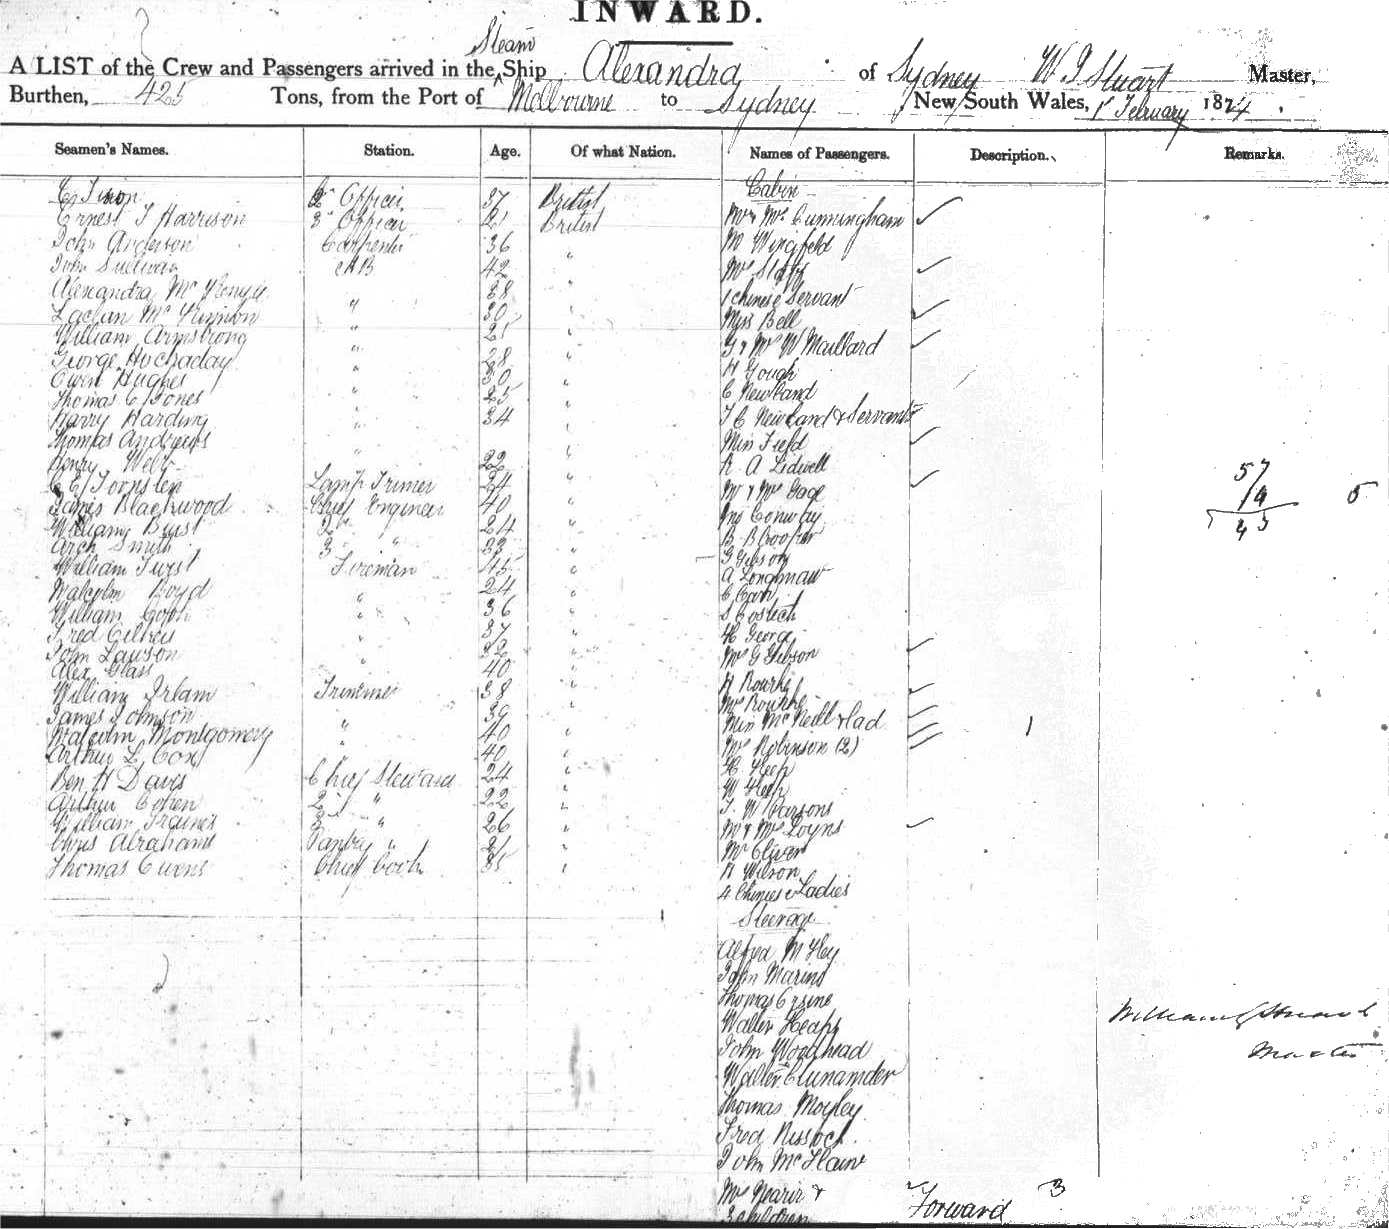 INWARD.
Steam
A LIST of the Crew and Passengers arrived in the Ship Alexandra of Sydney W J Stuart Master,
Burthen, 425 Tons, from the Port of Melbourne to Sydney New South Wales, 1st February 1874.
Seamen's Names. Station. Age. Of what Nation. Names of Passengers. Description. Remarks.
2nd Officer 37 British
Ernest J Harrison 3rd Officer 21 British
John Anderson Carpenter 36 "
John Sullivan AB 42 "
Alexandra 38 "
Lachlan McKinnon " 30 "
William Armstrong " 25 "
George Hockaday " 28 "
Owen Hughes " 30 "
Thomas C Jones " 25 "
Harry Harding " 34 "
Thomas Andrews "
Henry Webb 22 "
Lamp Trimer 24 "
James Blackwood Chief Engineer 40 "
William 2nd " 24 "
Arch Smith 3rd " 33 "
William Fireman 45 "
Malcolm Boyd " 24 "
William " 36 "
Fred " 37 "
John Lawson " 22 "
Alex Glass " 40 "
William Irlam Trimmer 38 "
James Johnson " 39 "
Malcolm Montgomery " 40 "
Arthur L Cox 40 "
Ben H Davis Chief Steward 24 "
Arthur Cohen 2nd " 22 "
William 3rd " 26 "
Chris Abrahams Pantry " 21 "
Thomas Owens Chief Cook 35 "
Cabin
Mr & Mrs Cunningham
M Wingfeld
Mrs
1 chinese Servant
Miss Bell
G & Mrs W Maillard
H Gough
C Newland
J C Newland & Servant
Miss Field
R A Lidwell
Mr & Mrs Gage
Jno Conway
B B Cooper
G Gibson
A
C Carr
S
H George
Mrs G Gibson
H Rourke
Mrs Rourke
Miss McNeill & lad 1
Mrs Robinson (2)
H Heep
W Heep
J W Parsons
Mr & Mrs Loyns
Mr Oliver
R Wilson
4 Chinese Ladies
Steerage
Alfred
John Marino
Thomas
Walter Heaps
John Woodhead
Walter
Thomas Moyley
Fred
John
Mrs &
3 children Forward 3
57
14 5
43
William J Stuart
Master